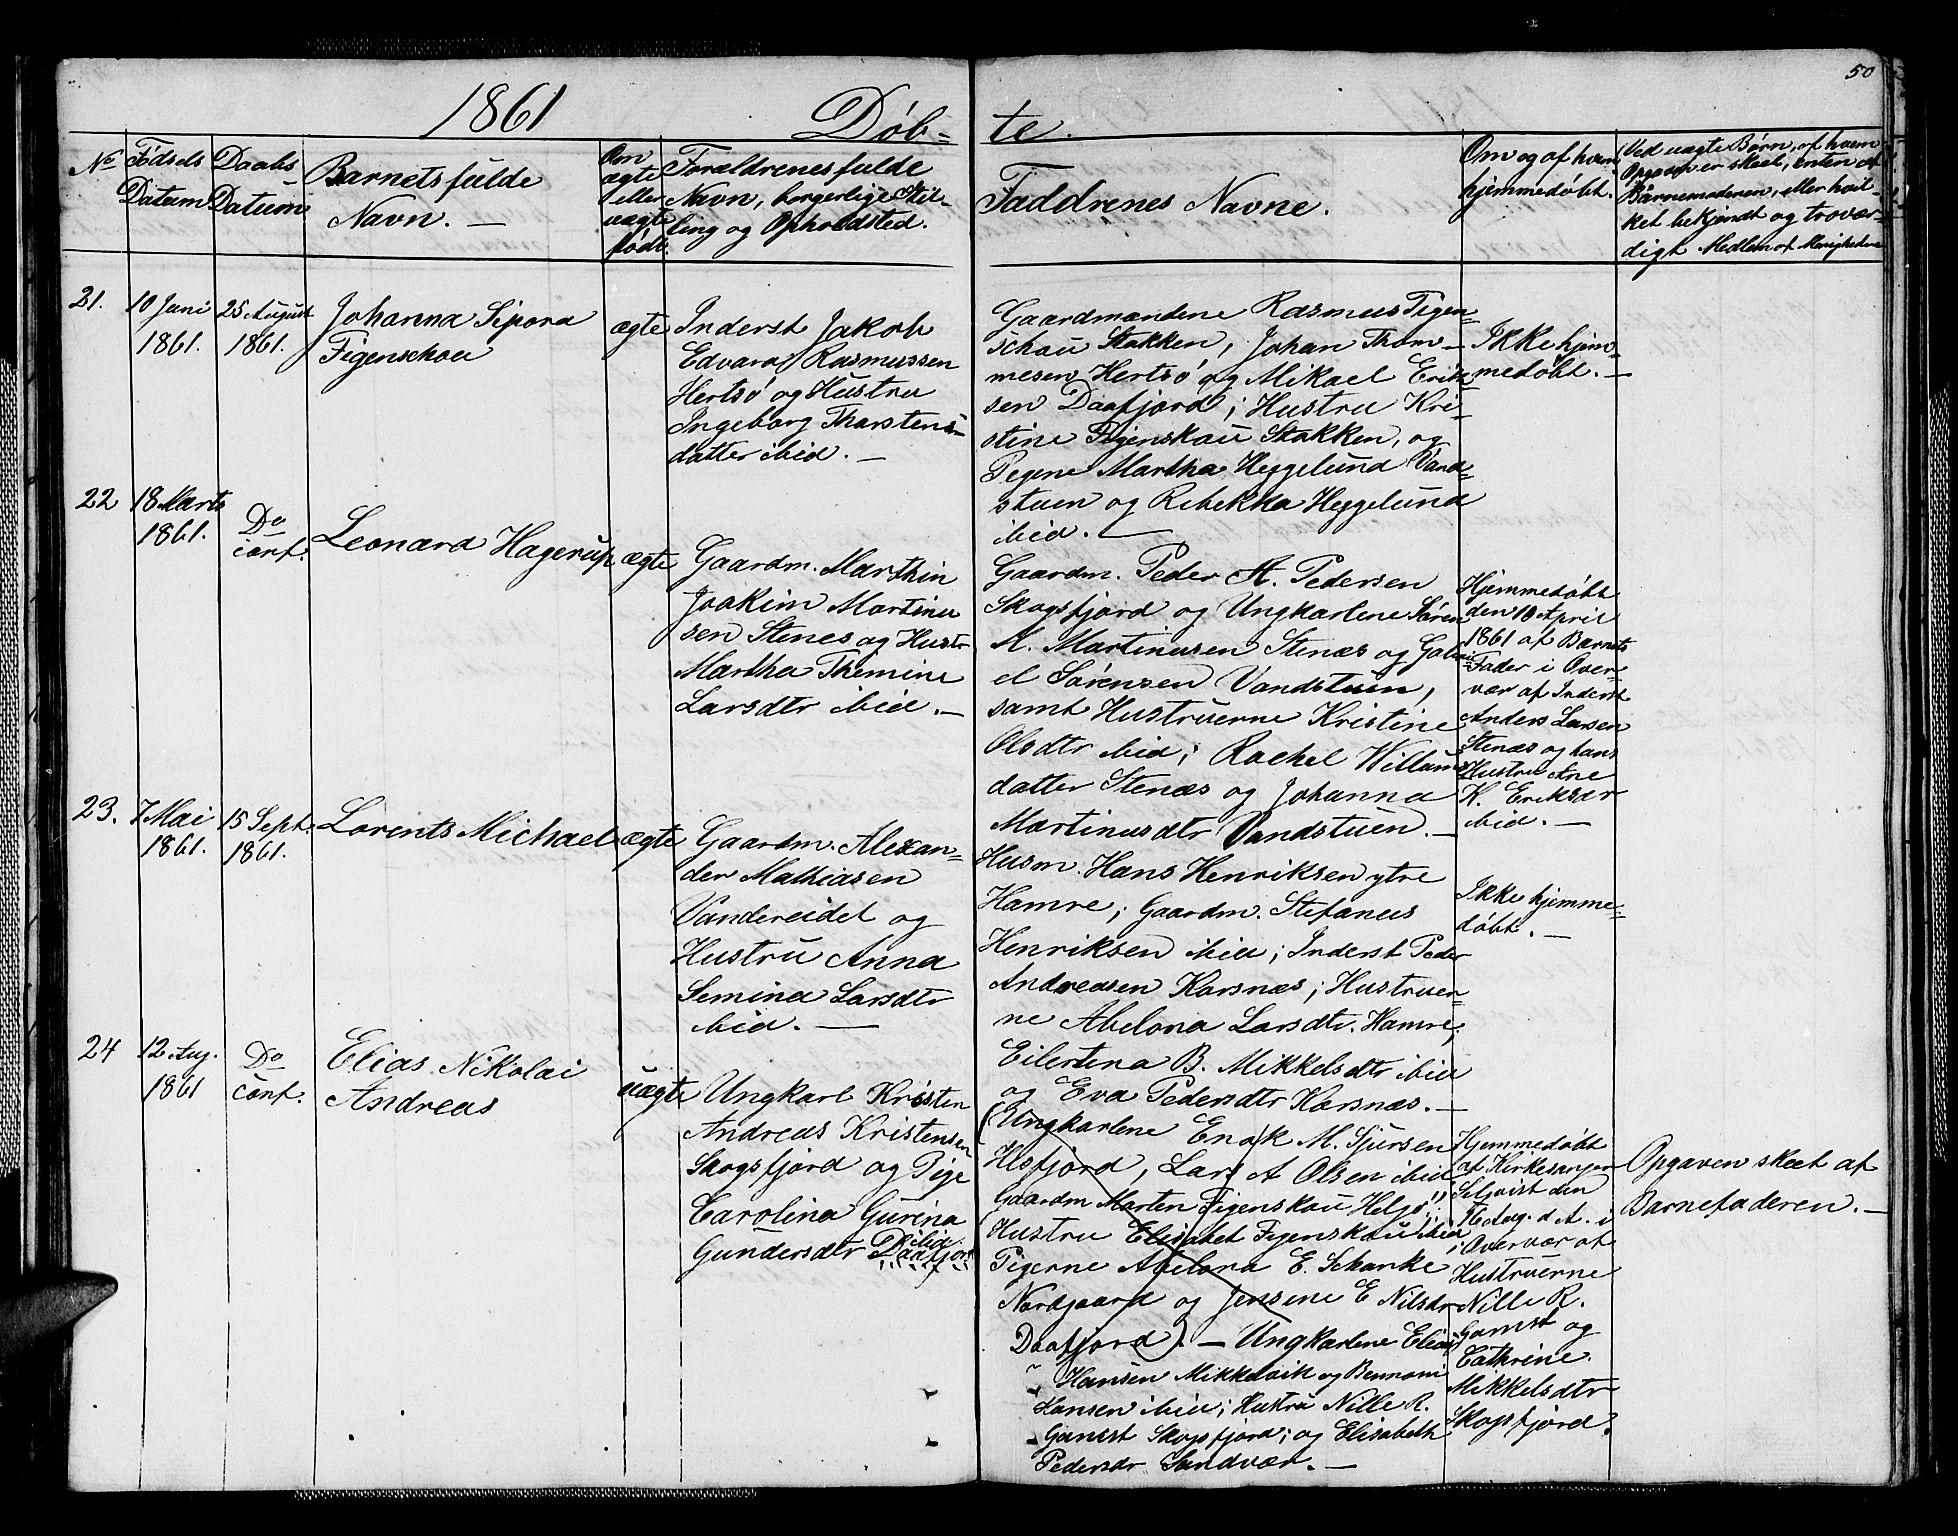 50
1861 Døb= te.
No
Fødsels
Datum
Daabs
Datum
Barnets fulde
Navn. —
Om
ægte
eller
uægte
født.
Forældrenes fulde
Navn, borgerlige Stil-
ling og Opholdsted.
Faddrenes Navne.
Om og af hvem
hjemmedøbt.
Ved uægte Børn, af hvem
Opgaven er skeet, enten af
Barnemoderen, eller hvil-
ket bekjendt og trovær-
digt Medlem af Menigheden
21.
10 Juni
1861.
25 August
1861.
Johanna Sipora
Figenschou
ægte
Inderst Jakob
Edvard Rasmussen
Hertsø og Hustru
Ingeborg Thorstens-
datter ibid. —
Gaardmændene Rasmus Figen=
schou Stakken, Johan Thom-
mesen Hertsø og Mikael Erik-
sen Daafjord; Hustru Kri-
stine Figenskou Stakken, og
Pigene Martha Heggelund Vand-
stuen og Rebekka Heggelund
ibid. —
Ikke hjem-
medøbt. —
22
18 Marts
1861.
Do
conf.
Leonard Hagerup
ægte
Gaardm. Marthin
Joakim Martinu
sen Stenes og Hustr
Martha Themine
Larsdtr ibid. —
Gaardm. Peder A. Pedersen
Skogsfjord og Ungkarlene Søren
M. Martinusen Stenæs og Gabri
el Sørensen Vandstuen,
samt Hustruerne Kristine
Olsdtr ibid; Rachel Willums
datter Stenæs og Johanna
Martinusdtr Vandstuen. —
Hjemmedøbt
den 10 April
1861 af Barnets
Fader i Over-
vær af Inderst
Anders Larsen
Stenæs og hans
Hustru Ane
K. Eriksdr
ibid. —
23.
7 Mai
1861.
15 Sept.
1861.
Lorents Michael
ægte
Gaardm. Alexan=
der Mathiasen
Vandereidet og
Hustru Anna
Semina Larsdtr
ibid. —
Husm. Hans Henriksen ytre
Hamre; Gaardm. Stefanus
Henriksen ibid; Inderst Peder
Andreasen Karsnæs; Hustruer-
ne Abelona Larsdtr. Hamre;
Eilertina B. Mikkelsdtr ibid
og Eva Pedersdtr Karsnæs. —
Ikke hjemme=
døbt. —
24
12 Aug.
1861
Do
conf.
Elias Nikolai
Andreas
uægte
Ungkarl Kristen
Andreas Kristensen
Skogsfjord og Pige
Carolina Gurina
ibid.
Gundersdtr Daafjor
(Ungkarlene Enok M. Sjursen
Lars A Olsen ibid
Gaardm Marten Figenskou Helgø;
Hustru Elisabet Figenskou ibid
Pigerne Abelona E. Schanke
Nordgaard og Jensine E Nilsdr
Daafjord). — Ungkarlene Elias
Hansen Mikkelvik og Bennoni
Hansen ibid; Hustru Nille R.
Gamst Skogsfjord; og Elisabeth
Pedersdr Sandvær. —
Hjemmedøbt
af Kirkesanger
den
Aug. d. A. i
Overvær af
Hustruerne
Nille R.
Gamst og
Cathrine
Mikkelsdtr
Skogsfjord.
Opgaven skeet af
Barnefaderen. —